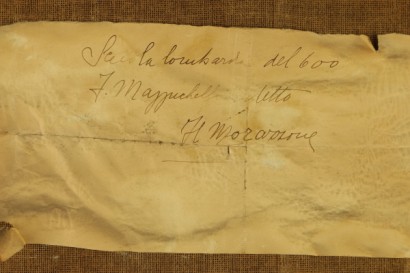 Scuola lombarda del 600
F. Mazzuchelli detto
Il Morazzone